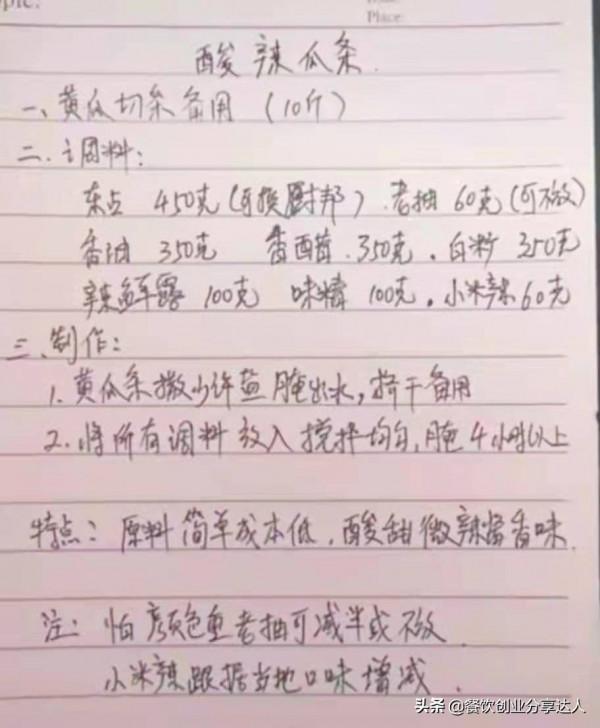 Place:
酸辣瓜条.
一、黄瓜切条备用 (10斤)
二.主调料:
东古 450克(可换厨邦). 老抽 60克(可不放)
香油 350克 香醋.350克. 白糖 350克
辣鲜露 100克 味精 100克. 小米辣60克
三.制作:
1.黄瓜条撒少许盐腌出水,挤干备用
2.将所有调料放入搅拌均匀,腌4小时以上
特点: 原料简单成本低.酸甜微辣酱香味.
注: 怕颜色重老抽可减半或不放
小米辣跟据当地口味增减.
头条 @餐饮创业分享达人